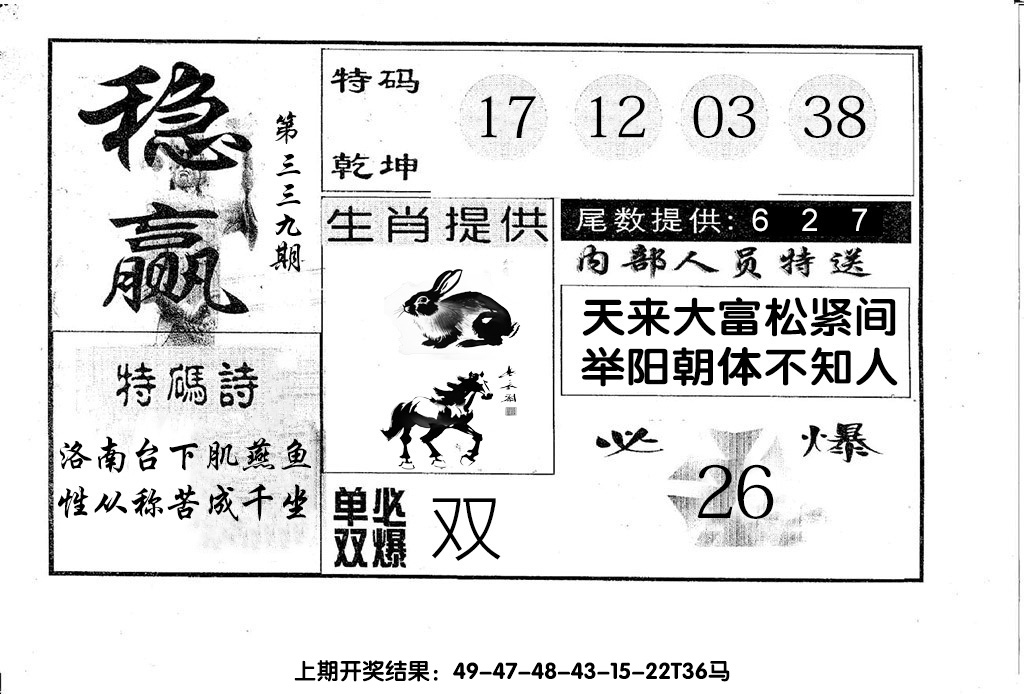 稳
赢
第三三九期
特码
乾坤
17 12 03 38
生肖提供
尾数提供: 6 2 7
内部人员特送
天来大富松紧间
举阳朝体不知人
特碼詩
洛南台下肌燕鱼
性从称苦成千坐
单双
必爆
双
必爆
26
上期开奖结果：49-47-48-43-15-22T36马